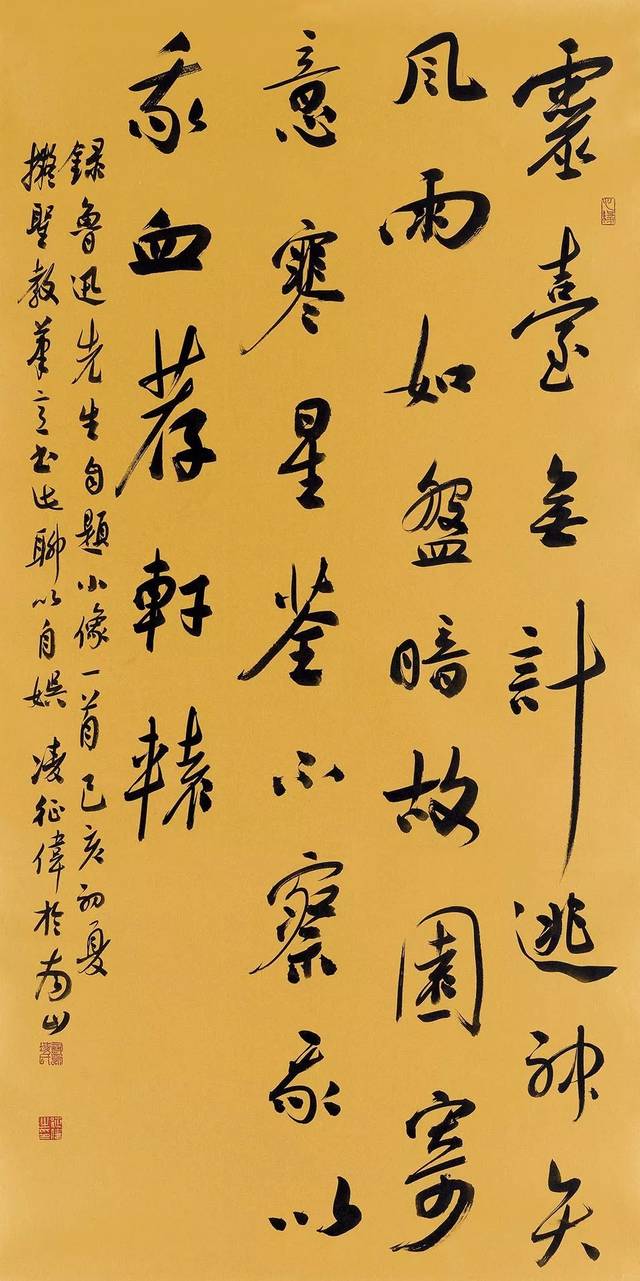 靈臺無計逃神矢
風雨如盤暗故園寄
意寒星荃不察我以
我血荐軒轅
錄魯迅先生自題小像一首己亥初夏
擬聖教筆意書此聊以自娛凌征偉於南山